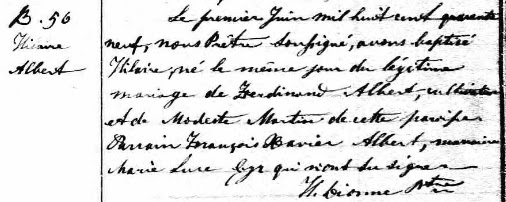 B. 56
Hilaire
Albert
Le premier Juin mil huit cent quarante
neuf, nous Prêtre soussigné, avons baptisé
Hilaire, né le même jour du légitime
mariage de Ferdinand Albert, cultivateur
et de Modeste Martin de cette paroisse
Parrain François Xavier Albert, marraine
Marie Luce Cyr qui n'ont su signer
H. Dionne Ptre